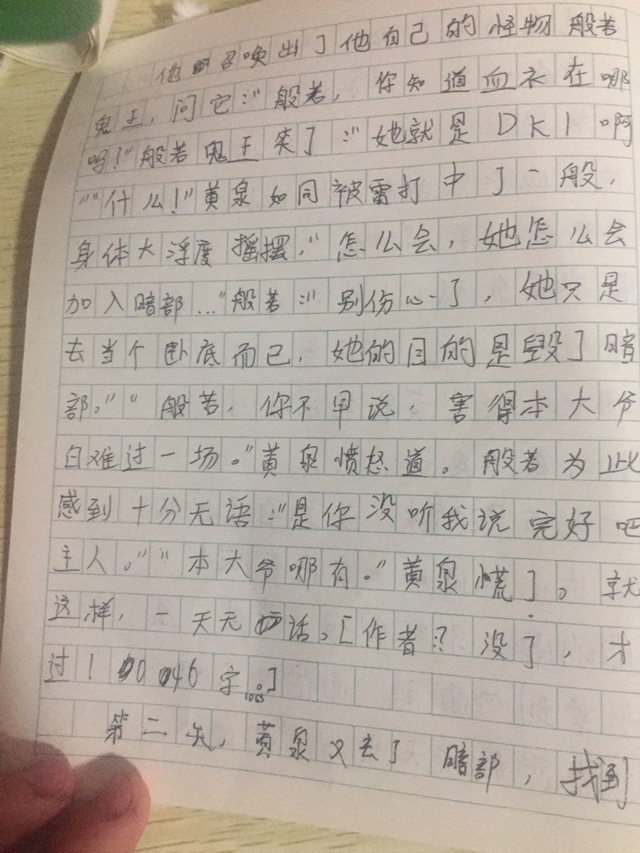 他召唤出了他自己的怪物般若
鬼王，问它："般若，你知道血衣在哪
吗！"般若鬼王笑了："她就是DK1啊
""什么！"黄泉如同被雷打中了一般，
身体大浮度摇摆，"怎么会，她怎么会
加入暗部…"般若："别伤心了，她只是
去当个卧底而已，她的目的是毁了暗
部。""般若，你不早说，害得本大爷
白难过一场。"黄泉愤怒道。般若为此
感到十分无语："是你没听我说完好吧
主人。""本大爷哪有。"黄泉慌了。就
这样，一天无话。[作者：没了，才
过1046字。。。]
第二天，黄泉又去了暗部，找到